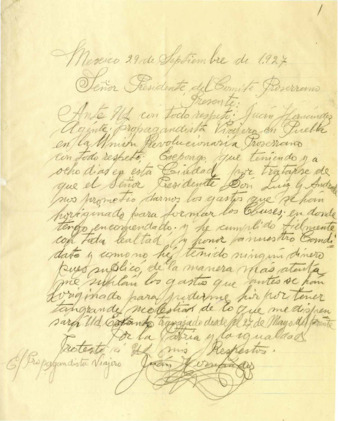 1
Mexico 29 de Septiembre de 1927
Señor Presidente del Comité Proserrano
Presente:
Ante Ud. con todo respeto: Juan Hernandez
Agente propagandista viajero en Puebla
en la Union Revolucionaria Proserrano
con todo respeto; Expongo que teniendo ya
ocho dias en esta Ciudad por tratarse de
que el Señor Presidente Don Luis G. Andrade
nos prometio darnos los gastos que se han
horiginado para los Cluses, en donde
tengo encomendado y he cumplido fielmente
con toda lealtad, y honor para nuestro Candi
dato y como no he tenido ningun dinero
pues suplico, de la manera mas atenta
que los gastos que antes se han
origionado para poderme hir por tener
tan grande necesidad de lo que me dispen
sara Ud. desde el 27 de Mayo del
Por la Patria y lo que
Protesto a Ud. mis Respetos.
El Propagandista Viajero
Juan Hernandez